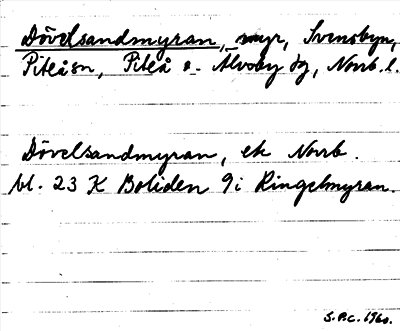 Dövelsandmyran, myr, Svensbyn,
Piteå sn, Piteå o. Älvsby dg, Norrb. l.
Dövelsandmyran, ek Norrb.
bl. 23 K Boliden 9i Ringelmyran.
S.P.C. 1960.